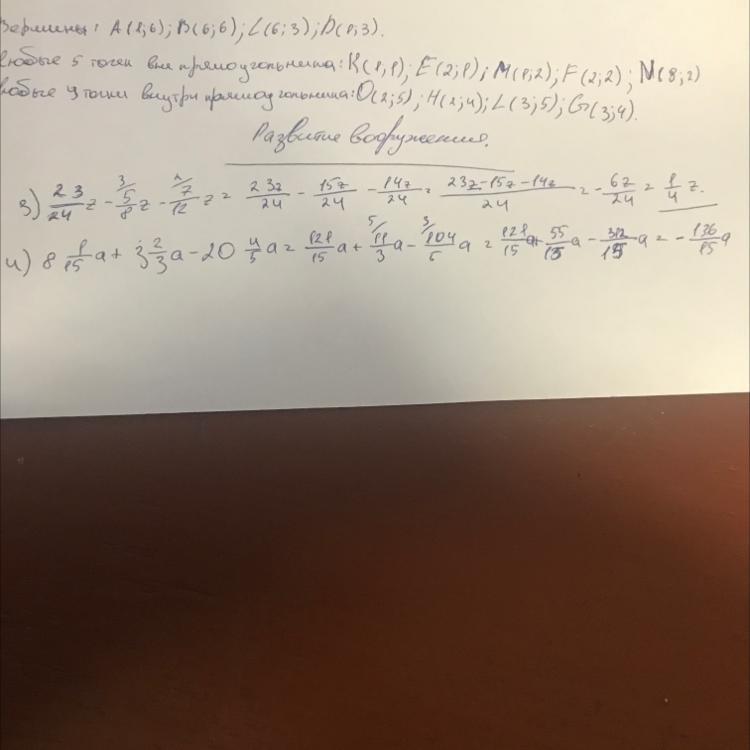 Вершины: A(1;6); B(6;6); L(6;3); D(1;3).
Любые 5 точек вне прямоугольника: K(1,1); E(2;1); M(1;2); F(2;2); N(8;2)
Любые 4 точки внутри прямоугольника: O(2;5); H(2;4); L(3;5); G(3;4).
Развитие вооружения.
з) 23/24 z - 5/8 z - 7/12 z = 23z/24 - 15z/24 - 14z/24 = 23z-15z-14z/24 = - 6z/24 = 1/4 z.
и) 8 1/15 a + 3 2/3 a - 20 4/5 a = 121/15 a + 11/3 a - 104/5 a = 121/15 a + 55/15 a - 312/15 a = - 136/15 a